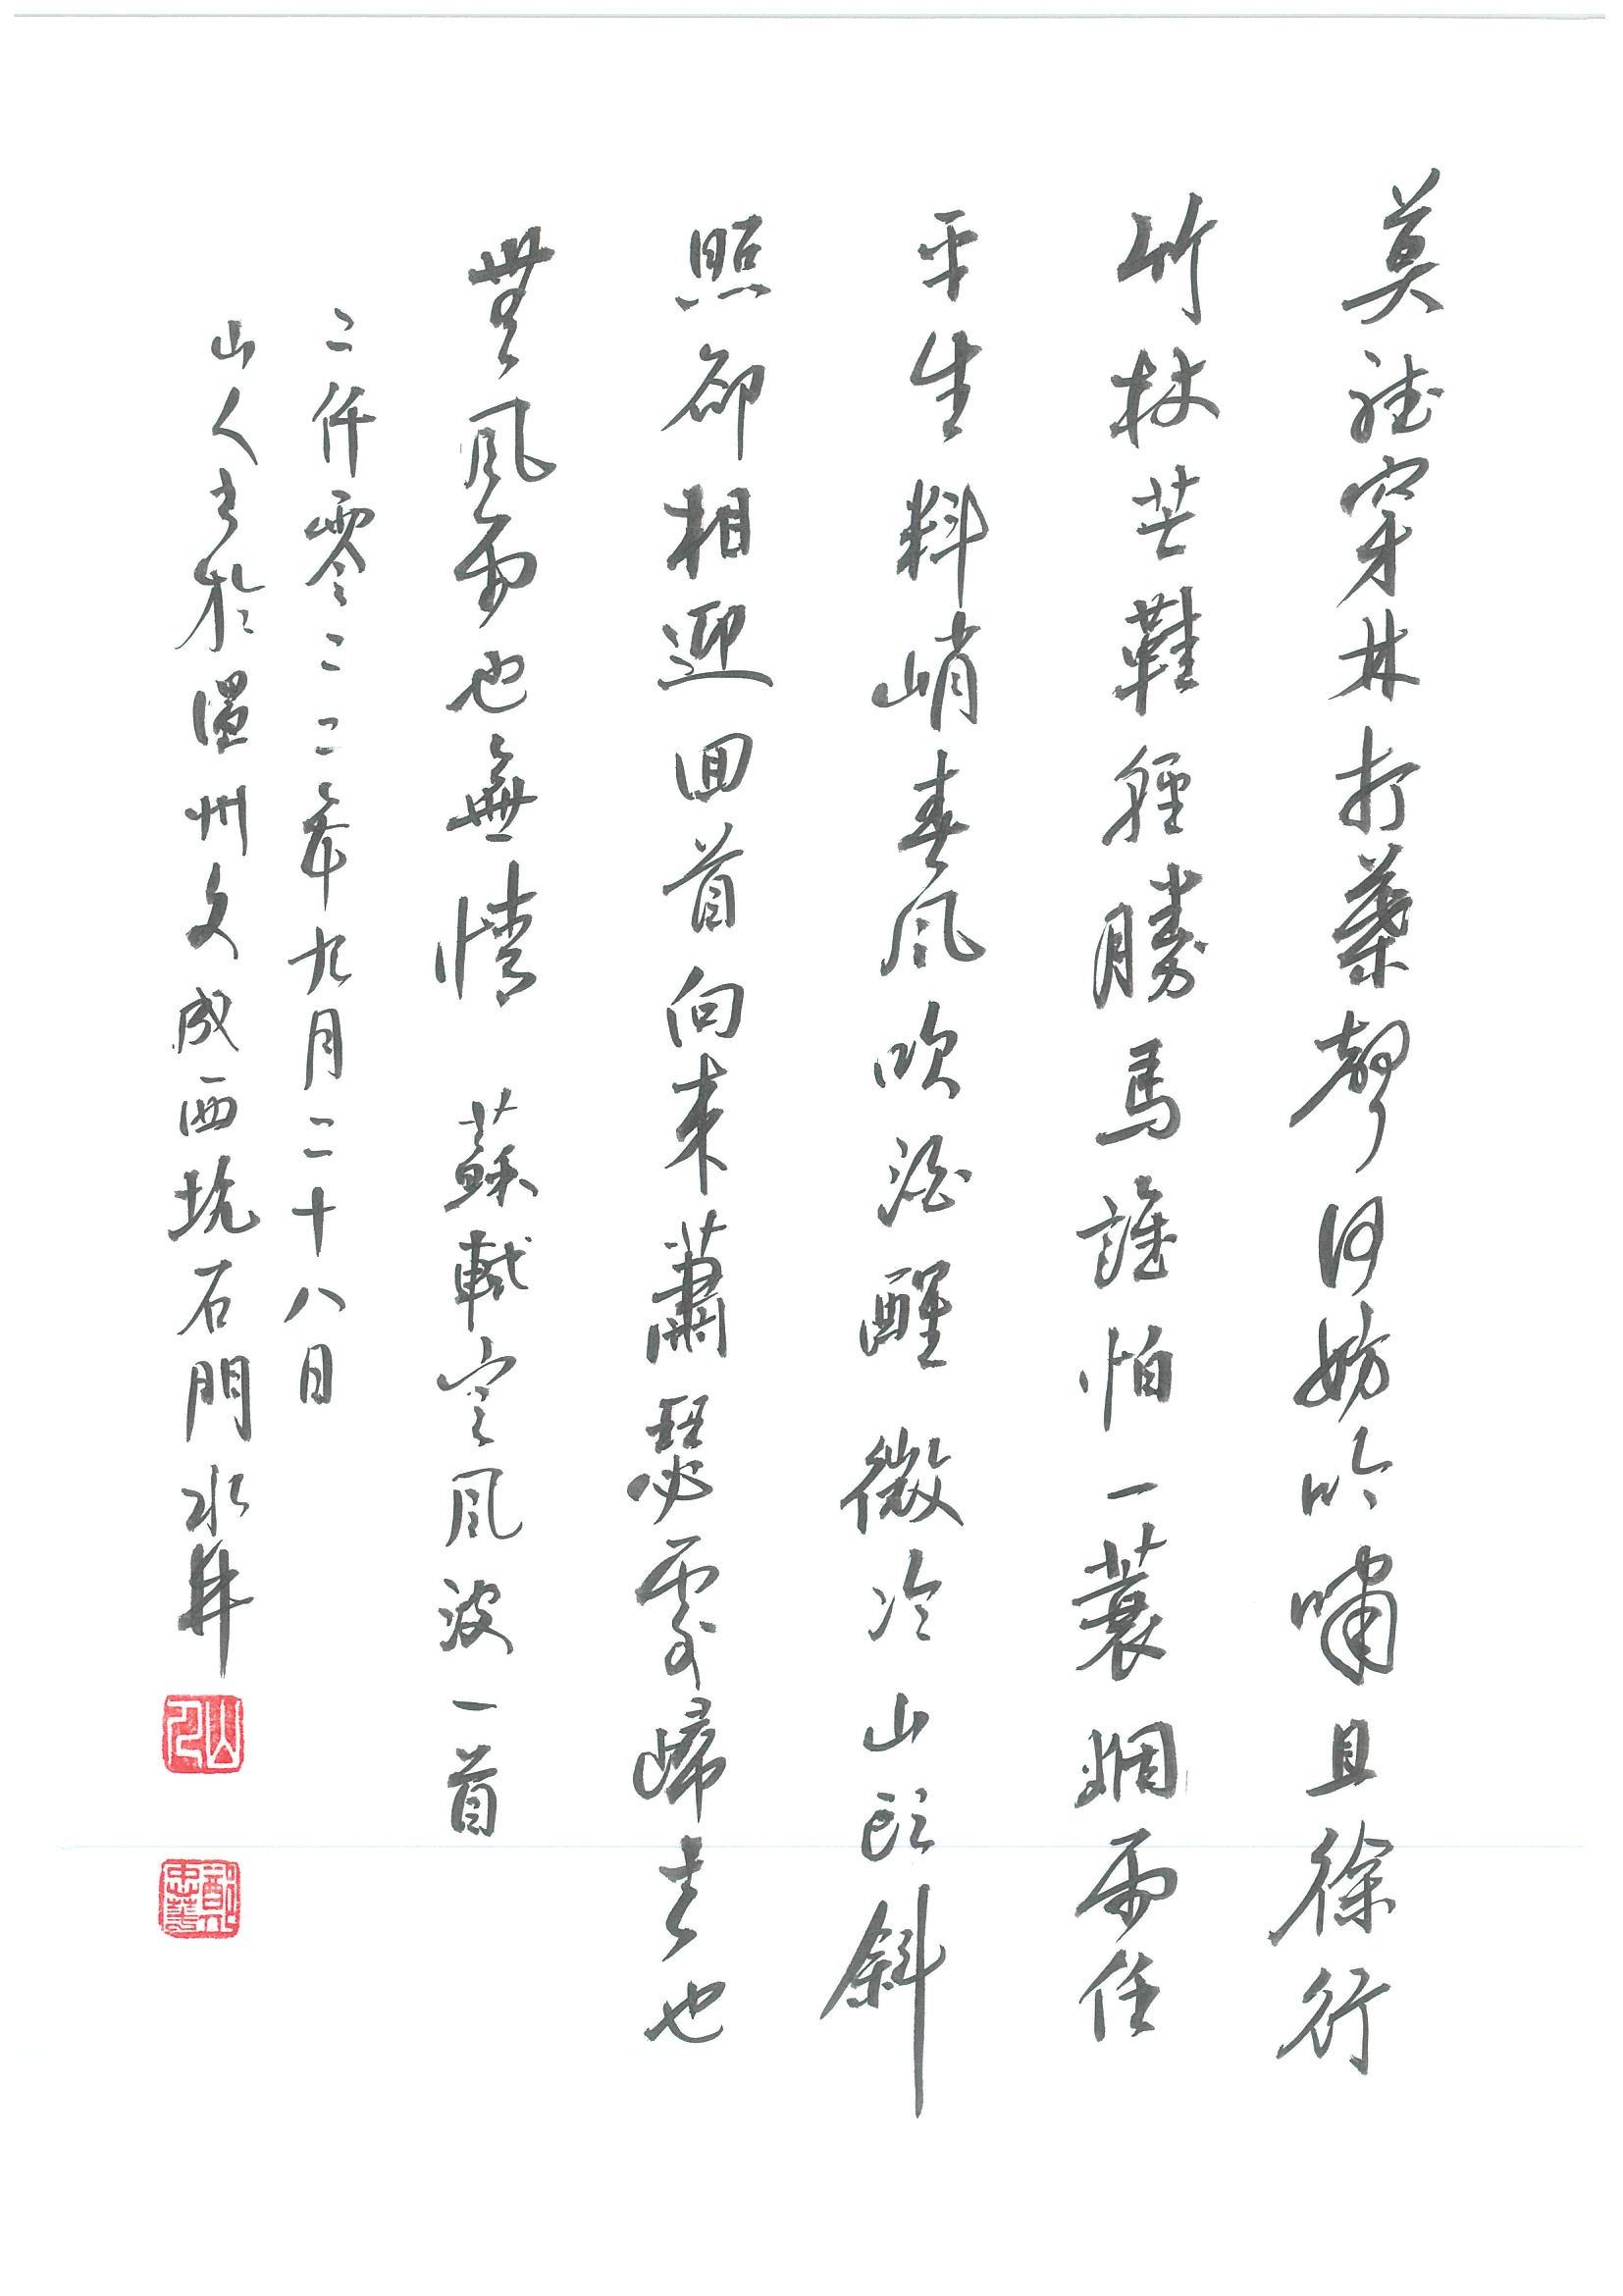 莫聴穿林打葉聲何妨吟嘯且徐行
竹杖芒鞋輕勝馬誰怕一蓑烟雨任
平生料峭春风吹酒醒微冷山头斜
照卻相迎回首向来蕭瑟處歸去也
無風雨也無情 蘇軾定風波一首
二仟零二二年九月二十八日
山人书於溫州文成西坑石門水井
山人
鄭忠華